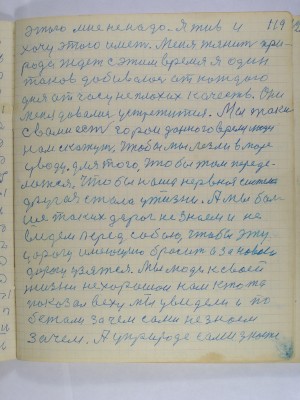 этого мне не надо. Я жив и 119
хочу этого имет. Меня тянит при
рода ждет с этим время Я один
таков добивался от каждого
дня от часу неплохих качеств. Они
меня довали устремится. Мы
с вами ест
нам скажут, чтобы мы лезли в море
у воду. для того, чтобы там переде
ложся, чтобы наша нервная система
другая стала у жизни. А мы бол-
ше таких дорог не знаем и не
ведем перед собою, чтобы эту
дорогу имеющую бросит а за новою
дорогу узятся. Мы люди к своей
жизни нехорошои нам кто то
показал веху мы увидели и по
бежали зачем сами не знаем
зачем. А у природе сами знаете